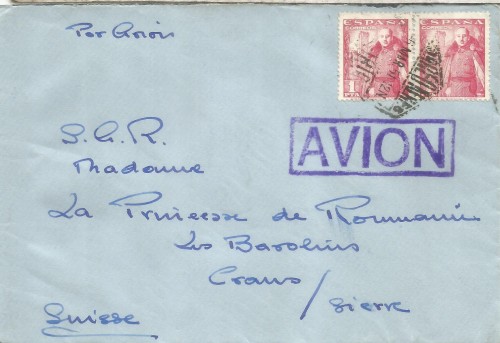 Por Avión
ESPAÑA
ESPAÑA
1
PTA
AVION
S. G. R.
Madame
La Princesse de Roumanie
Les Barolins
Crans / Sierre
Suisse